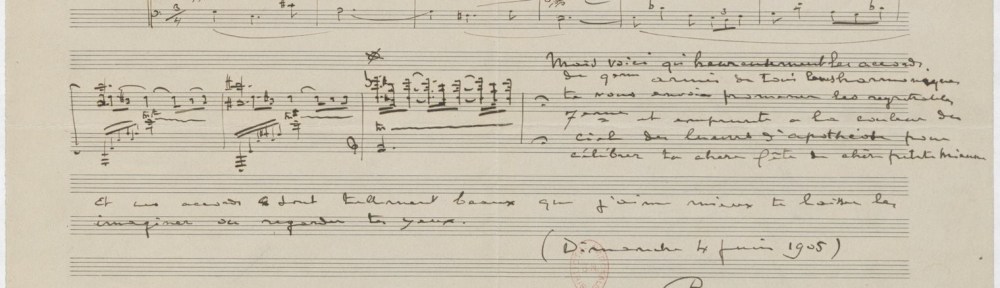 Mais voici qu'heureusement les accords
de 9ème armés de tous leurs harmoniques
te vous envoie promener les regrettables
7ème et emprunte à la couleur des
ciels des lueurs d'apothéose pour
célébrer ta chère fête de chère petite Mienne
Et ces accords sont tellement beaux que j'aime mieux te laisser les
imaginer ou regarder tes yeux.
(Dimanche 4 juin 1905)